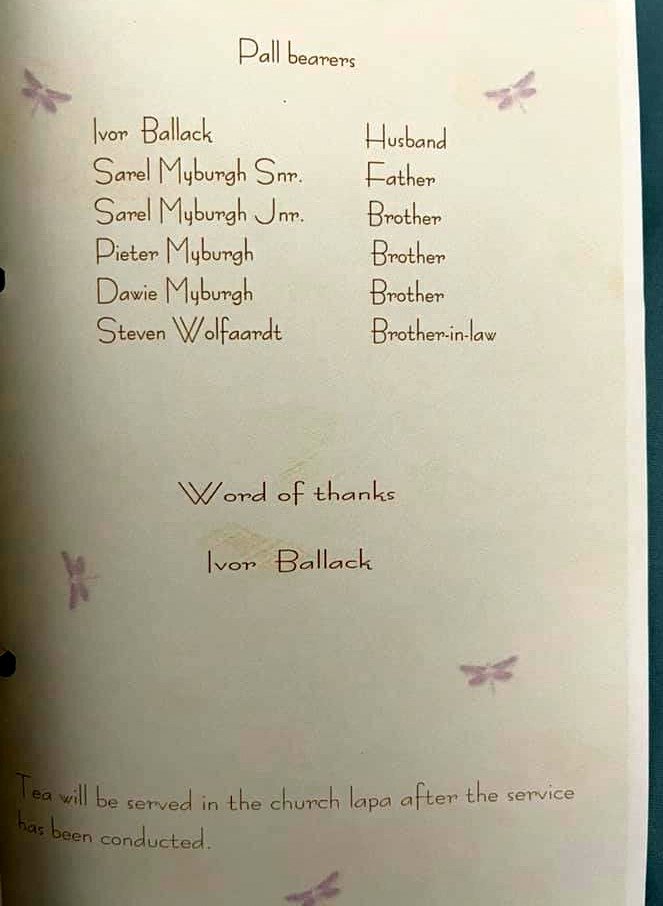 Pall bearers
Ivor Ballack Husband
Sarel Myburgh Snr. Father
Sarel Myburgh Jnr. Brother
Pieter Myburgh Brother
Dawie Myburgh Brother
Steven Wolfaardt Brother-in-law
Word of thanks
Ivor Ballack
Tea will be served in the church lapa after the service
has been conducted.